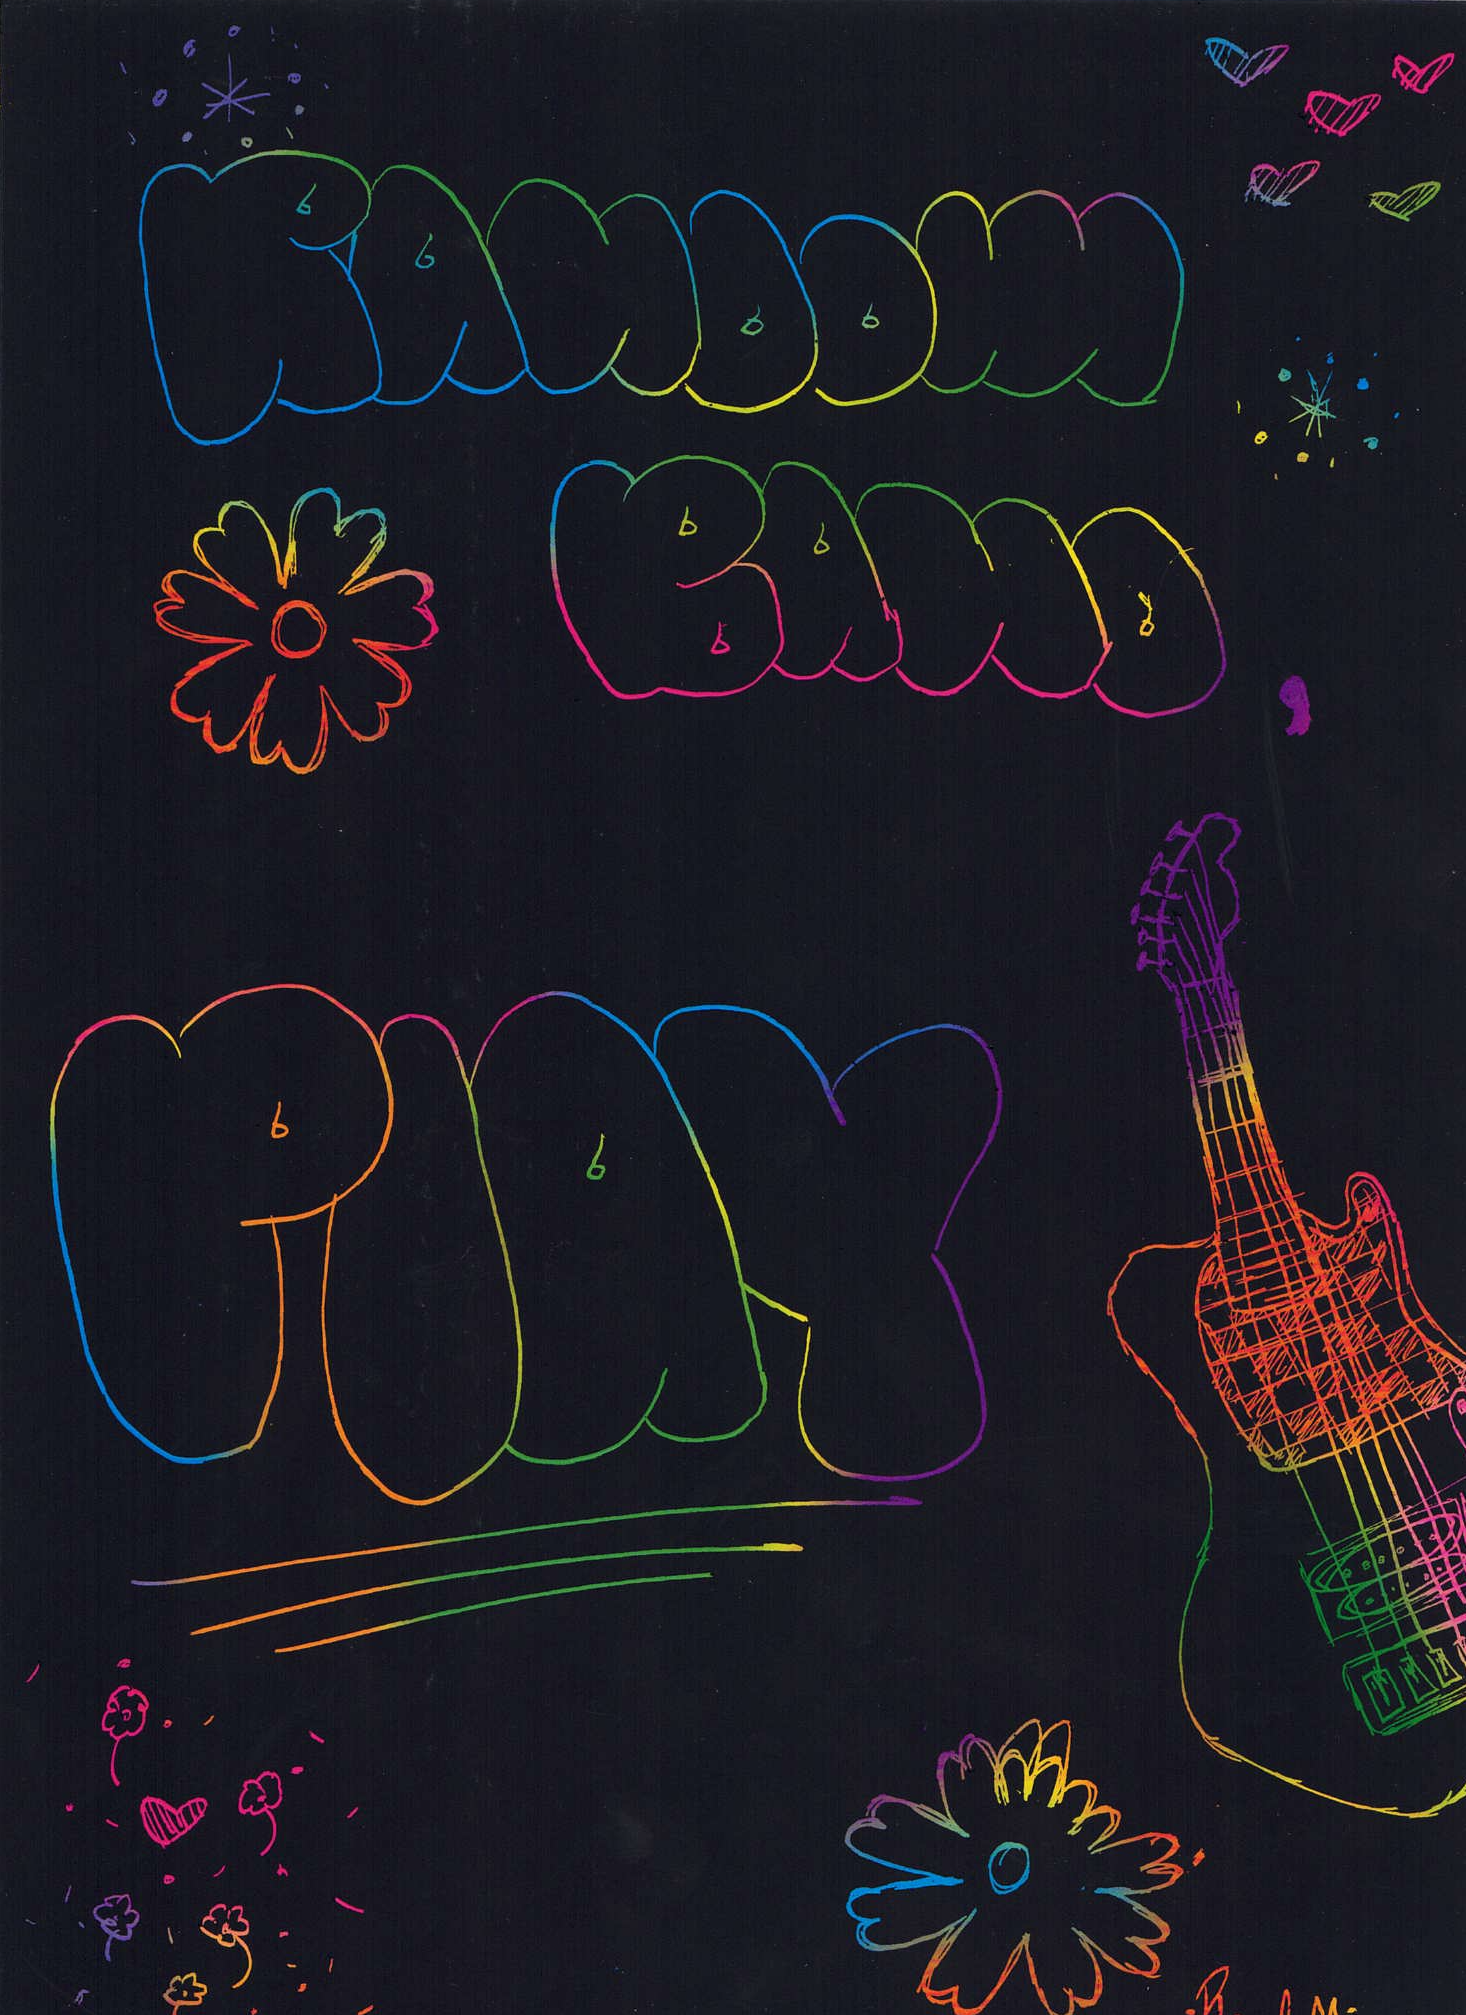 RANDOM
BAND,
PLAY